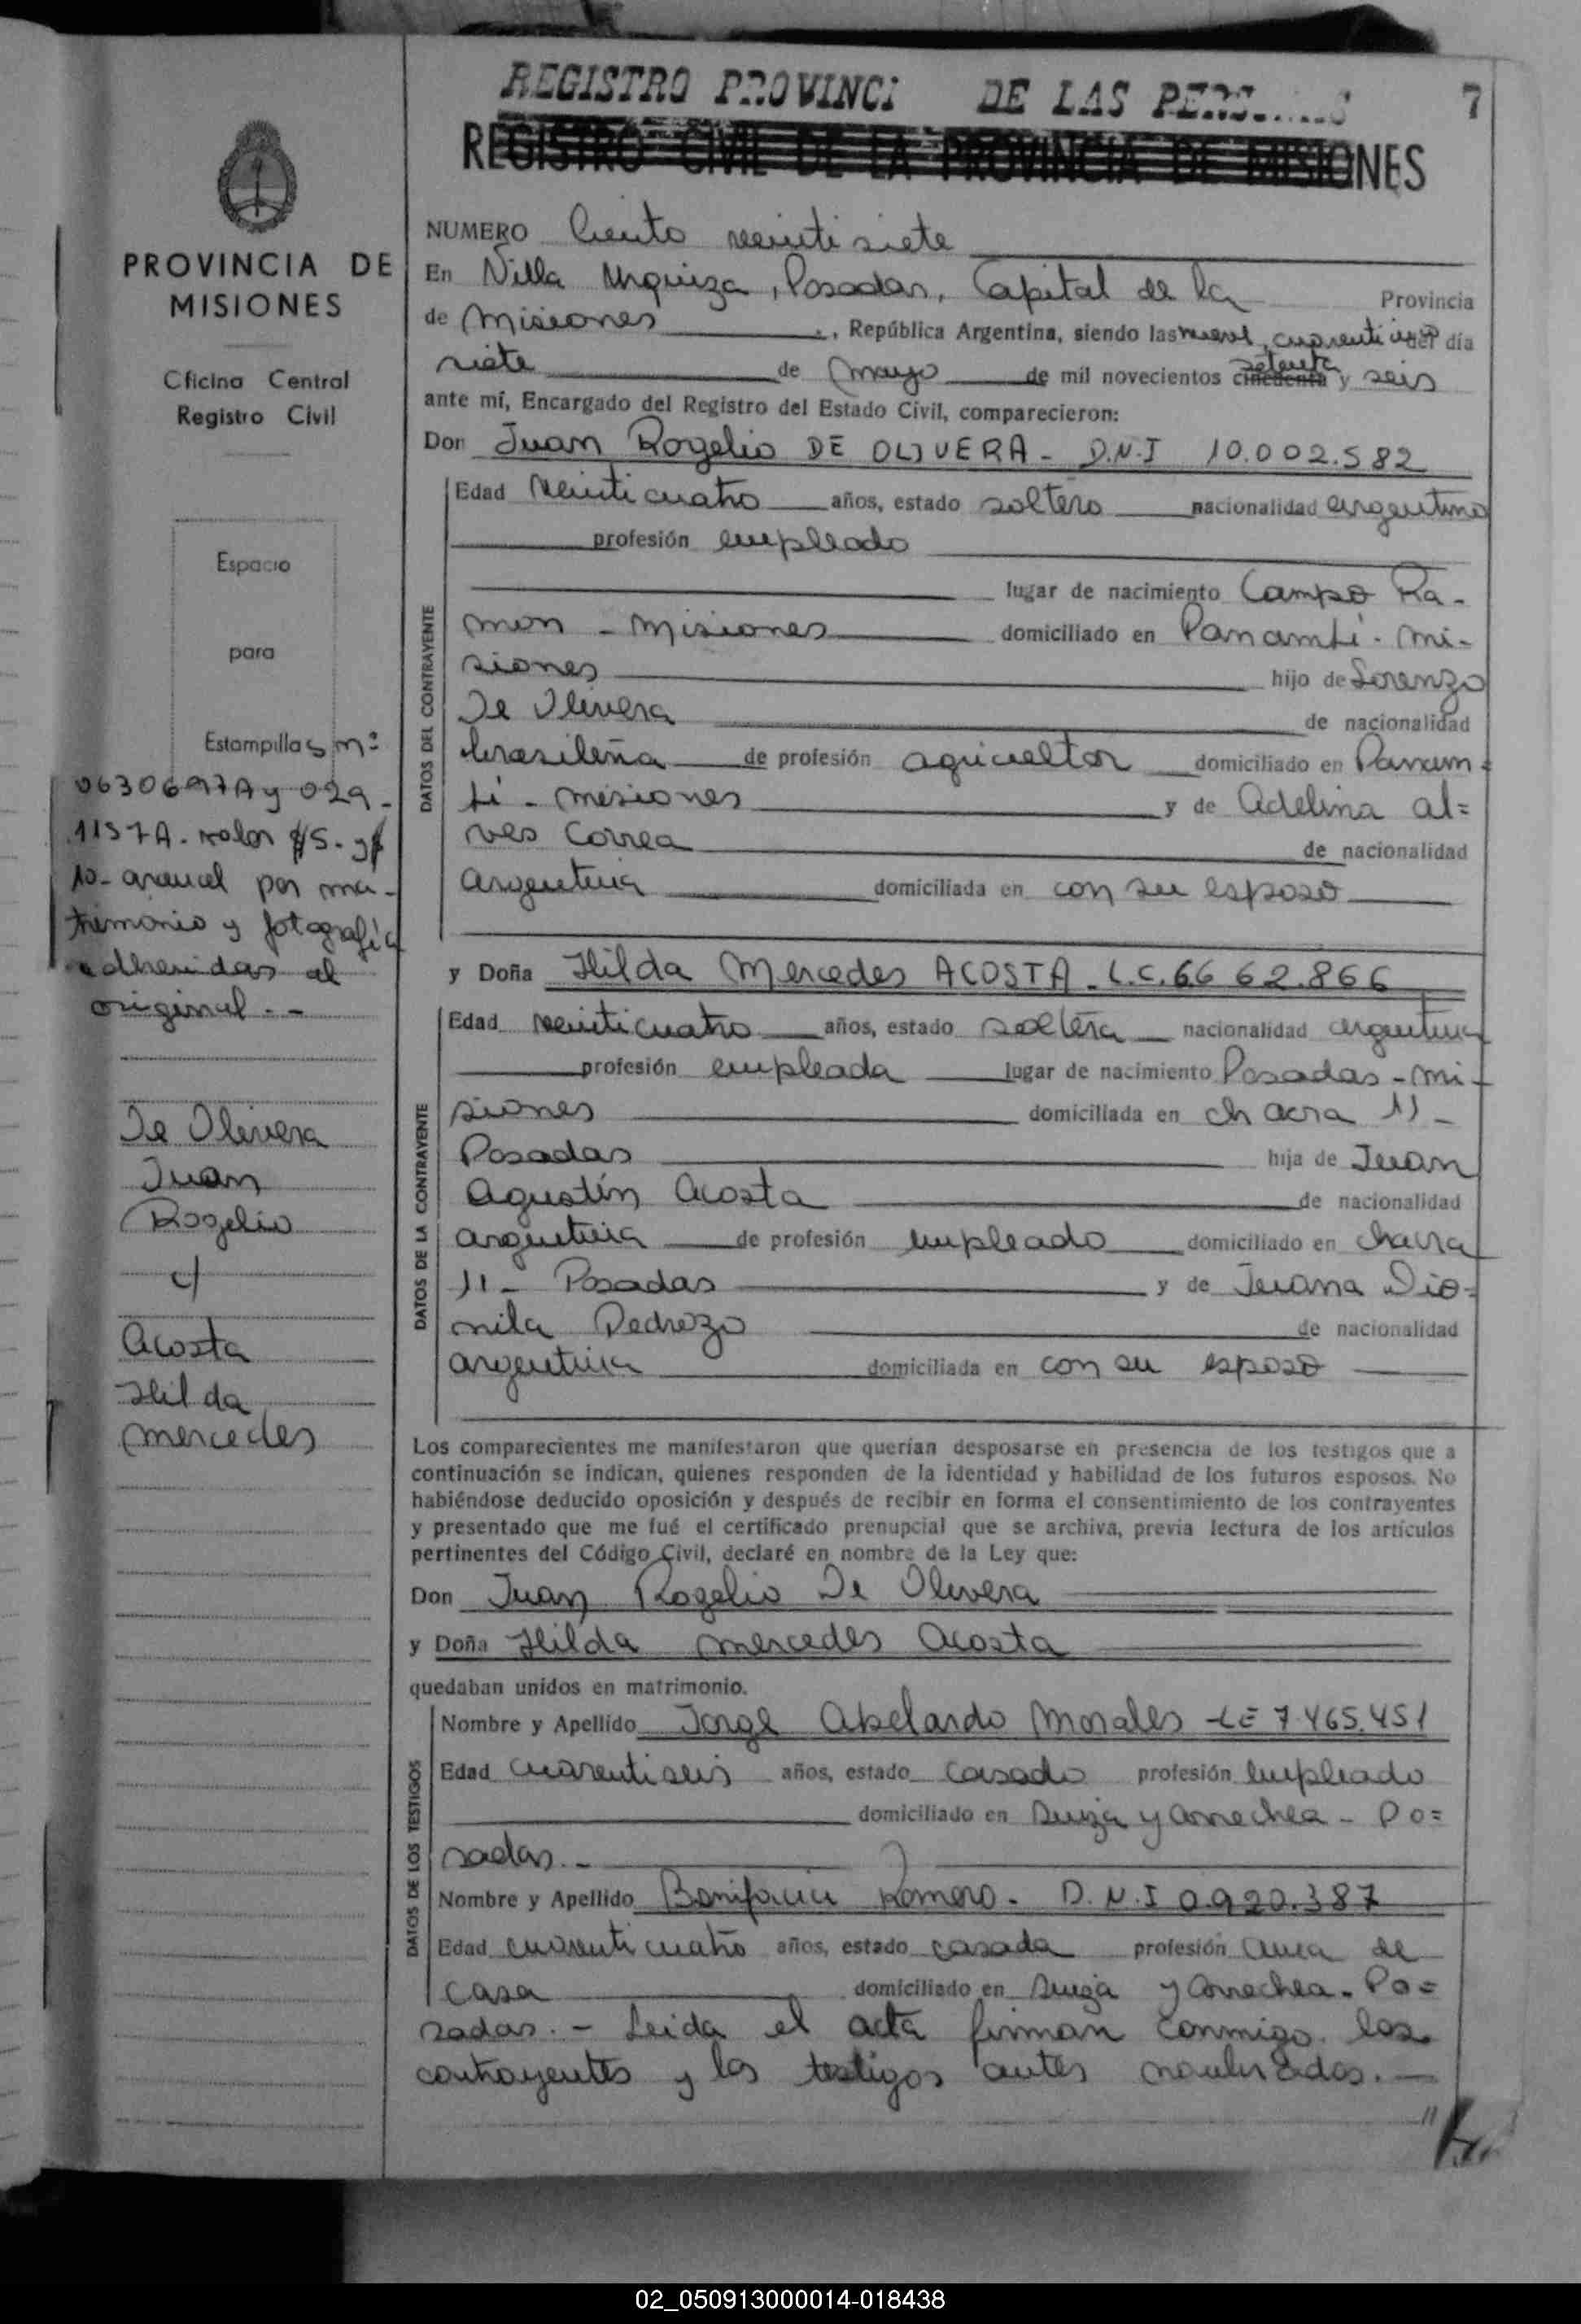 REGISTRO PROVINCI DE LAS
7
REGISTRO CIVIL DE LA PROVINCIA DE MISIONES
PROVINCIA DE
MISIONES
Oficina Central
Registro Civil
Espacio
para
Estampillas nº
0630697A y 029-
1157A. valor $5. y $
10- arancel por ma-
trimonio y fotografía
adheridas al
original.-
De Olivera
Juan
Rogelio
c/
Acosta
Hilda
Mercedes
NUMERO Ciento veintisiete
En Villa Urquiza, Posadas, Capital de la Provincia
de Misiones, República Argentina, siendo las nueve, del día
siete de Mayo de mil novecientos cincuenta setenta y seis
ante mí, Encargado del Registro del Estado Civil, comparecieron:
Don Juan Rogelio DE OLIVERA - D.N.I 10.002.582
DATOS DEL CONTRAYENTE
Edad veinticuatro años, estado soltero nacionalidad argentina
profesión empleado
lugar de nacimiento Campo Ra-
mon - Misiones domiciliado en Panambí - Mi-
siones hijo de Lorenzo
De Olivera de nacionalidad
brasileña de profesión agricultor domiciliado en Panam-
bí - Misiones y de Adelina Al=
ves Correa de nacionalidad
argentina domiciliada en con su esposo
y Doña Hilda Mercedes ACOSTA - L.C. 6662.866
DATOS DE LA CONTRAYENTE
Edad veinticuatro años, estado soltera nacionalidad argentina
profesión empleada lugar de nacimiento Posadas - Mi-
siones domiciliada en chacra 11 -
Posadas hija de Juan
Agustín Acosta de nacionalidad
argentina de profesión empleado domiciliado en chacra
11 - Posadas y de Juana Dio=
nila Pedrozo de nacionalidad
argentina domiciliada en con su esposo
Los comparecientes me manifestaron que querían desposarse en presencia de los testigos que a
continuación se indican, quienes responden de la identidad y habilidad de los futuros esposos. No
habiéndose deducido oposición y después de recibir en forma el consentimiento de los contrayentes
y presentado que me fué el certificado prenupcial que se archiva, previa lectura de los artículos
pertinentes del Código Civil, declaré en nombre de la Ley que:
Don Juan Rogelio De Olivera
y Doña Hilda Mercedes Acosta
quedaban unidos en matrimonio.
DATOS DE LOS TESTIGOS
Nombre y Apellido Jorge Abelardo Morales - LE 7.465.451
Edad cuarentiseis años, estado casado profesión empleado
domiciliado en Suiza y Arrechea - Po=
sadas.-
Nombre y Apellido Bonifacia Romero - D.N.I 0.920.387
Edad cuarenticuatro años, estado casada profesión ama de
casa domiciliado en Suiza y Arrechea - Po=
sadas. - Leida el acta firman conmigo los
contrayentes y los testigos antes nombrados.-
02_050913000014-018438